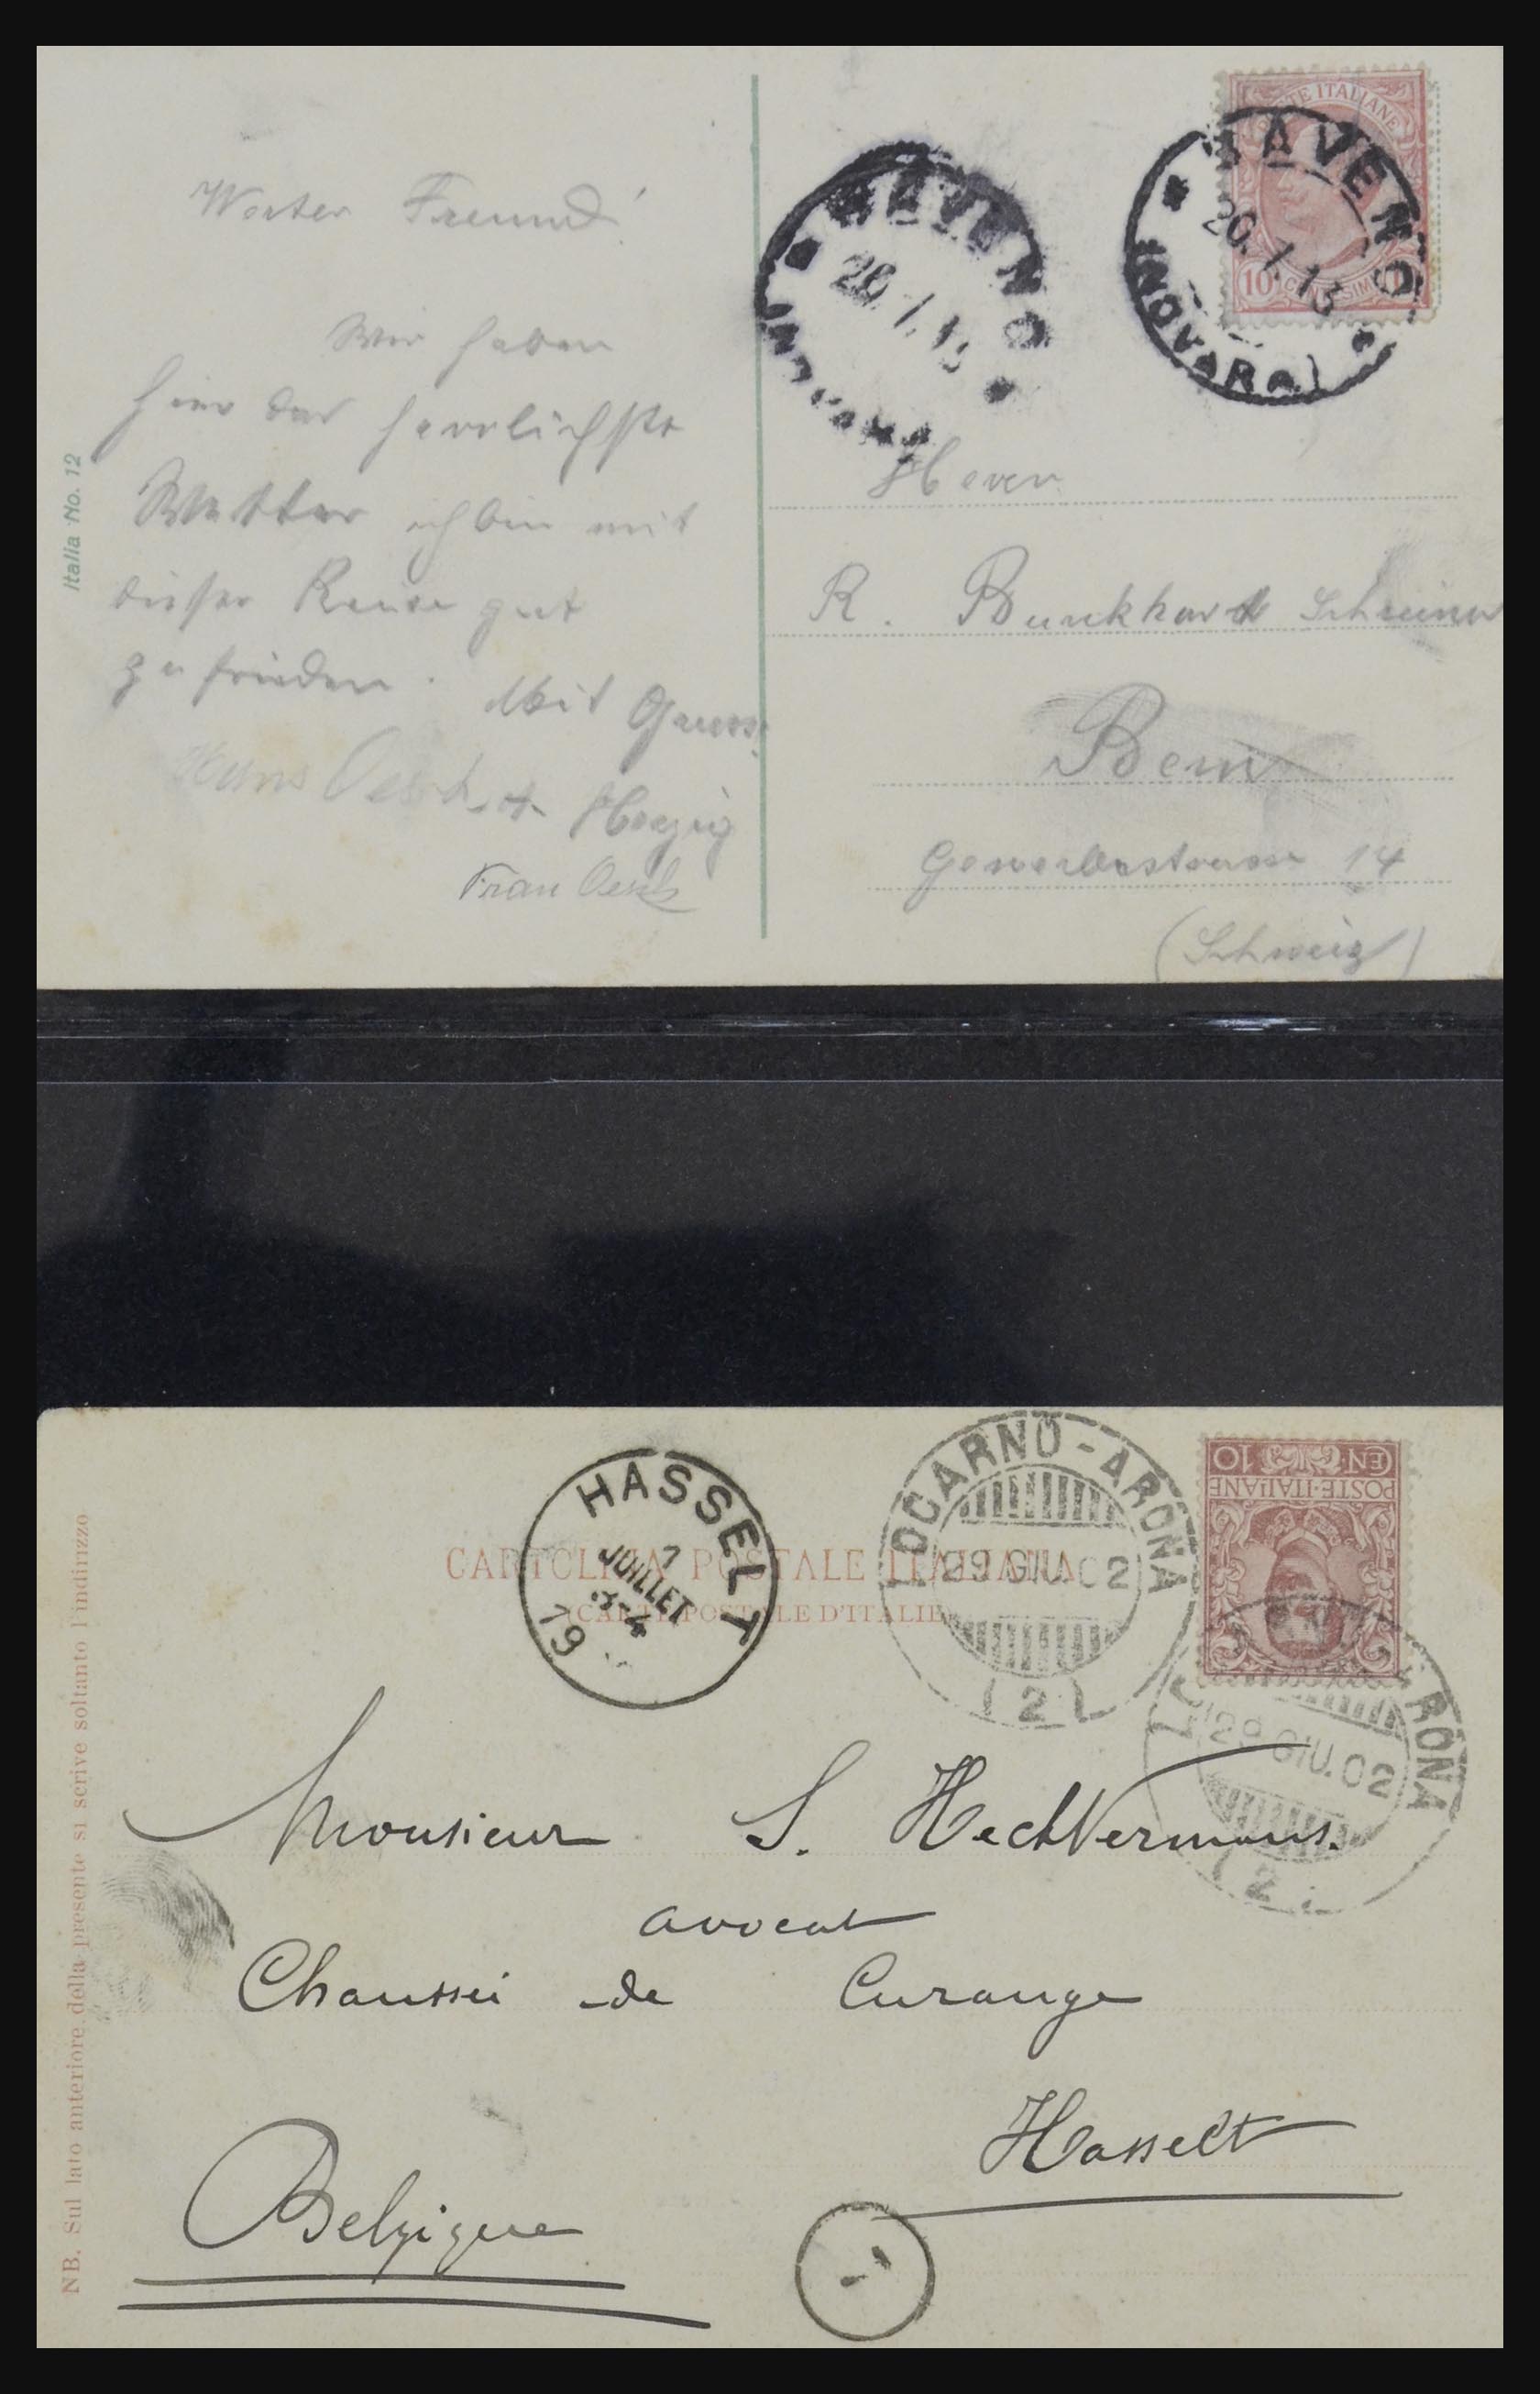 Werter Freund!
Wir haben
hier das herrlichste
Wetter ich bin mit
dieser Reise gut
zufrieden. Mit Gruss
Hans Oesch
Frau Oesch
Italia No. 12
POSTE ITALIANE
10
BAVENO
20.1.13
(NOVARA)
BAVENO
20.1.13
(NOVARA)
Herrn
R. Burkhardt Schreiner
Bern
Gewerbestrasse 14
(Schweiz)
CARTOLINA POSTALE ITALIANA
(CARTE POSTALE D'ITALIE)
NB. Sul lato anteriore della presente si scrive soltanto l'indirizzo
HASSELT
7
JUILLET
3-4
19
LOCARNO-ARONA
29 GIU.02
(2)
CEN. 10
POSTE·ITALIANE
LOCARNO-ARONA
29 GIU.02
(2)
Monsieur S. Hechtermans.
avocat
Chaussée de Curange
Hasselt
Belgique